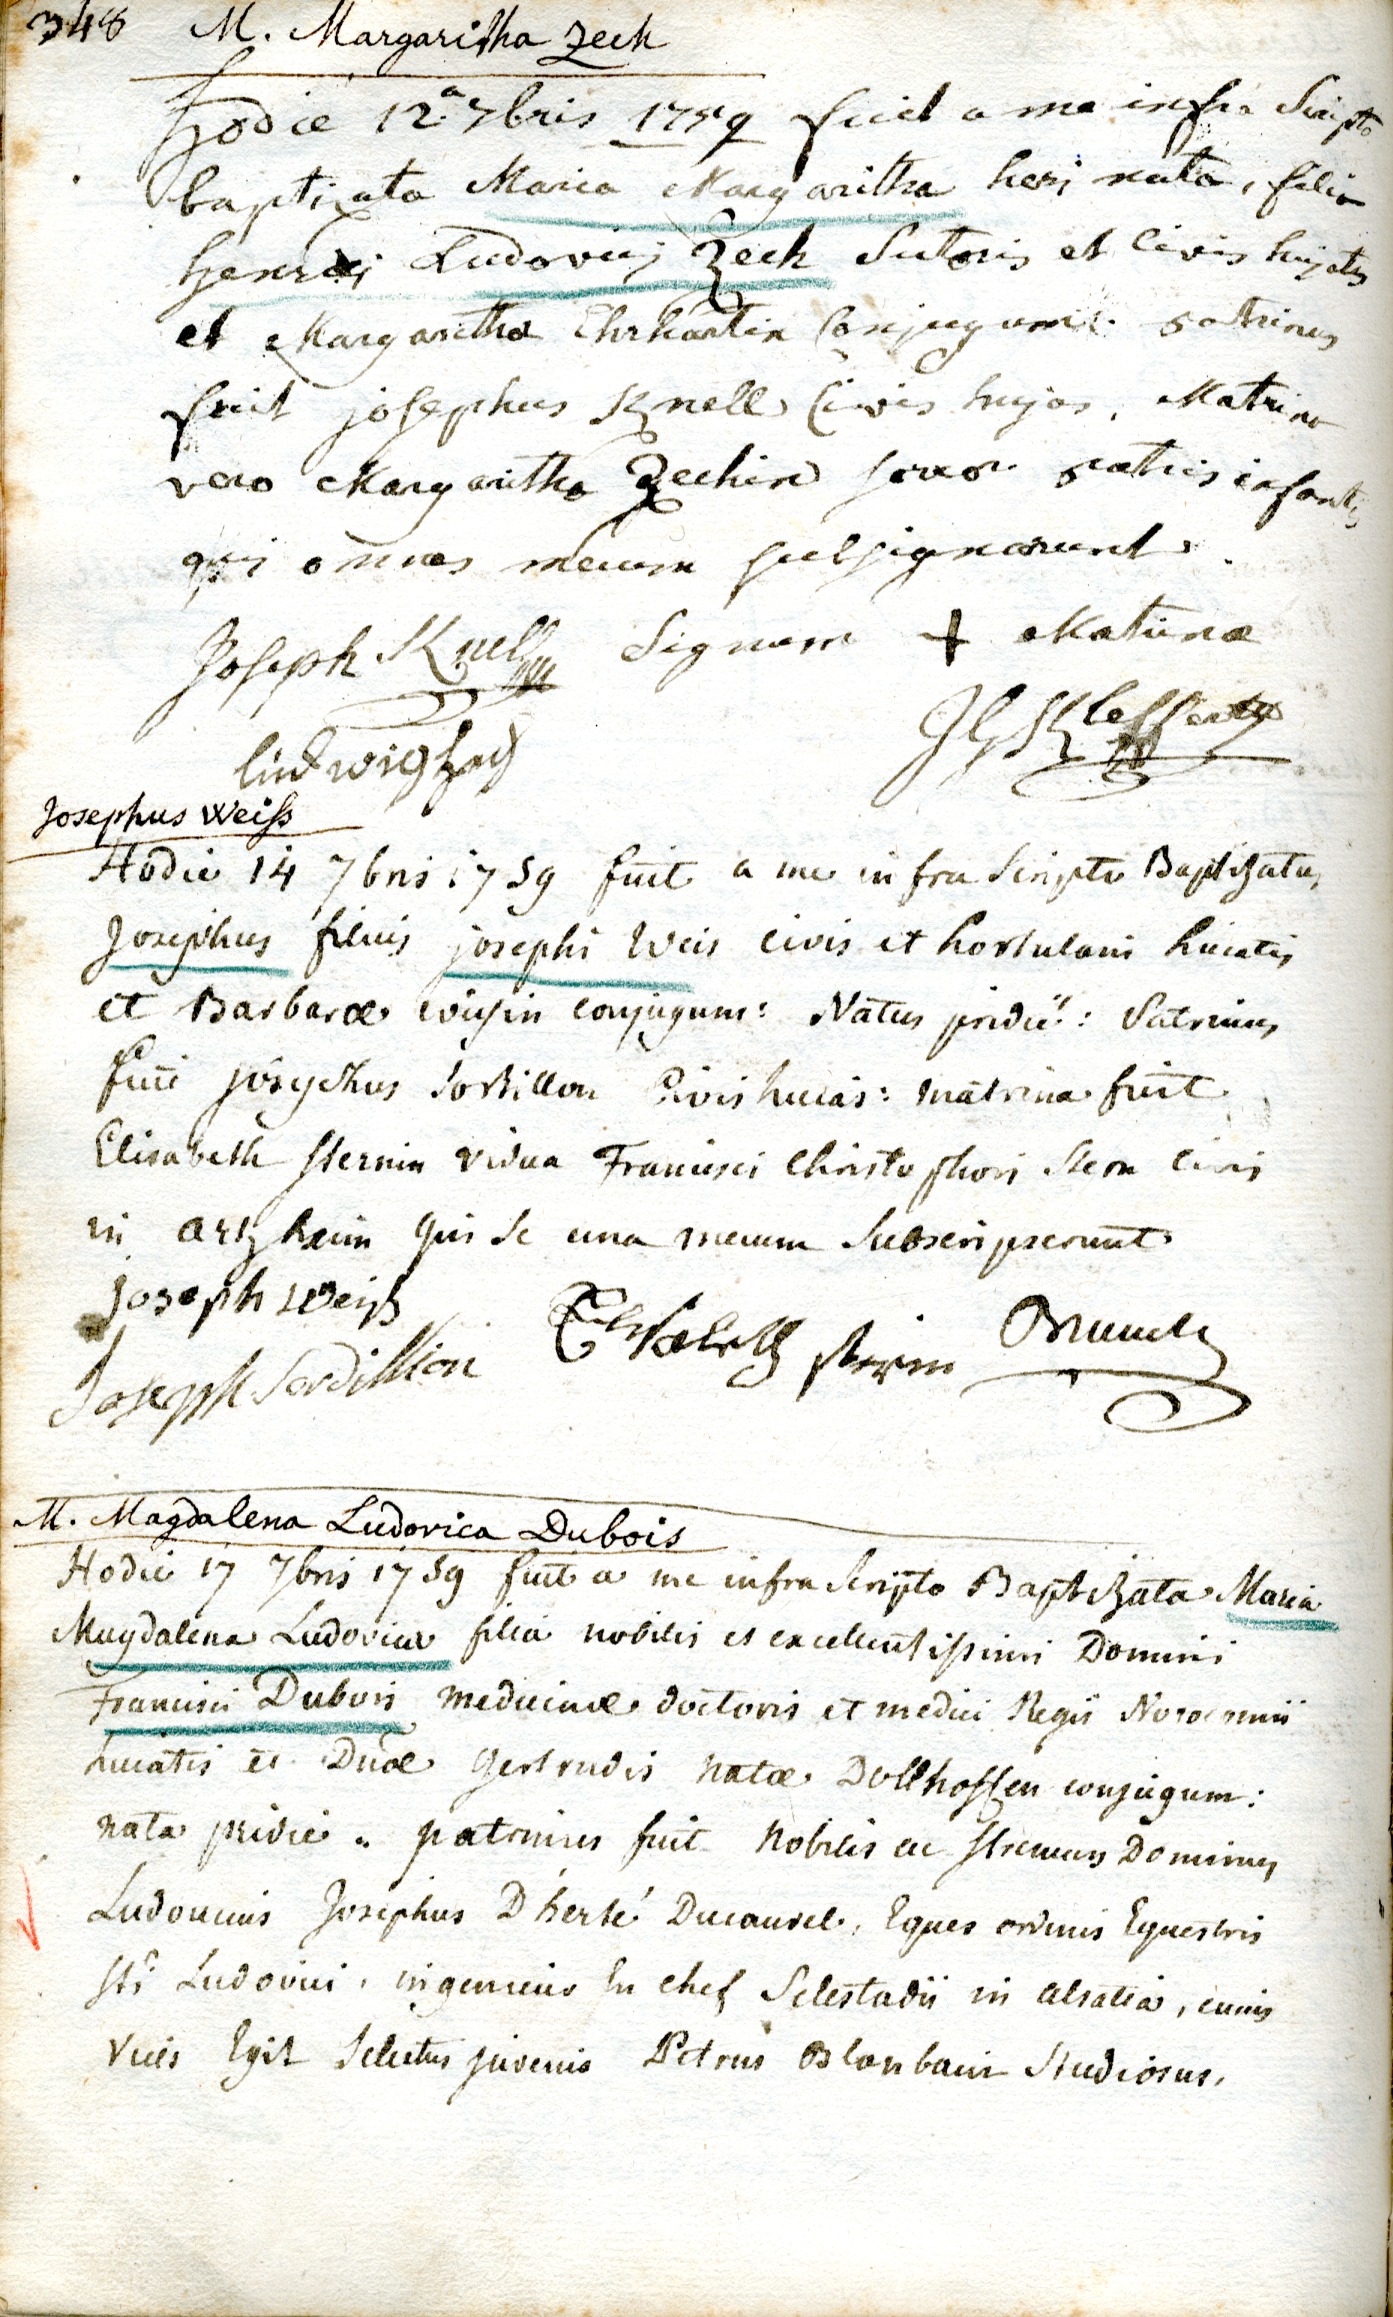 348 M. Margaritha Zech
Hodie 12.a 7bris 1759 fuit a me infra Scripto
baptizata Maria Margaritha heri nata, filia
henrici Ludovicj Zech Sutoris et Civis hujatis
et Margaritha Ehrhartin Conjugum: patrinus
fuit josephus Knell Civis hujas, Matrina
vero Margaritha Zechin soror patris infantis
qui omnes mecum subsignarunt.
Joseph Knell Signum + Matrinæ
ludwig
Josephus Weiss
Hodie 14 7bris 1759 fuit a me infra Scripto Baptizatus
Josephus filius josephi Weis civis et hortulani huiatis
et Barbaræ conjugum: Natus pridie: Patrinus
fuit josephus Sordillon Civis huias: matrina fuit
Elisabeth Sternin vidua Francisci Christophori Stern civis
in artzheim qui se una mecum Subscripserunt
Joseph Weiß
Joseph Sordillion Elisabeth sternin
M. Magdalena Ludovica Dubois
Hodie 17 7bris 1759 fuit a me infra Scripto Baptizata Maria
Magdalena Ludovica filia nobilis et excellentissimi Domini
Francisci Dubois medicinæ doctoris et medici Regii
huiatis et Dnæ Gertrudis natæ Dollhoffen conjugum:
nata pridie. patrinus fuit Nobilis ac strenuus Dominus
Ludovicus Josephus D'herté Ducaurel, Eques ordinis Equestris
sti Ludovici, ingenieur En chef Selestadii in alsatia, cuius
vices Egit Selectus juvenis Petrus Studiosus,